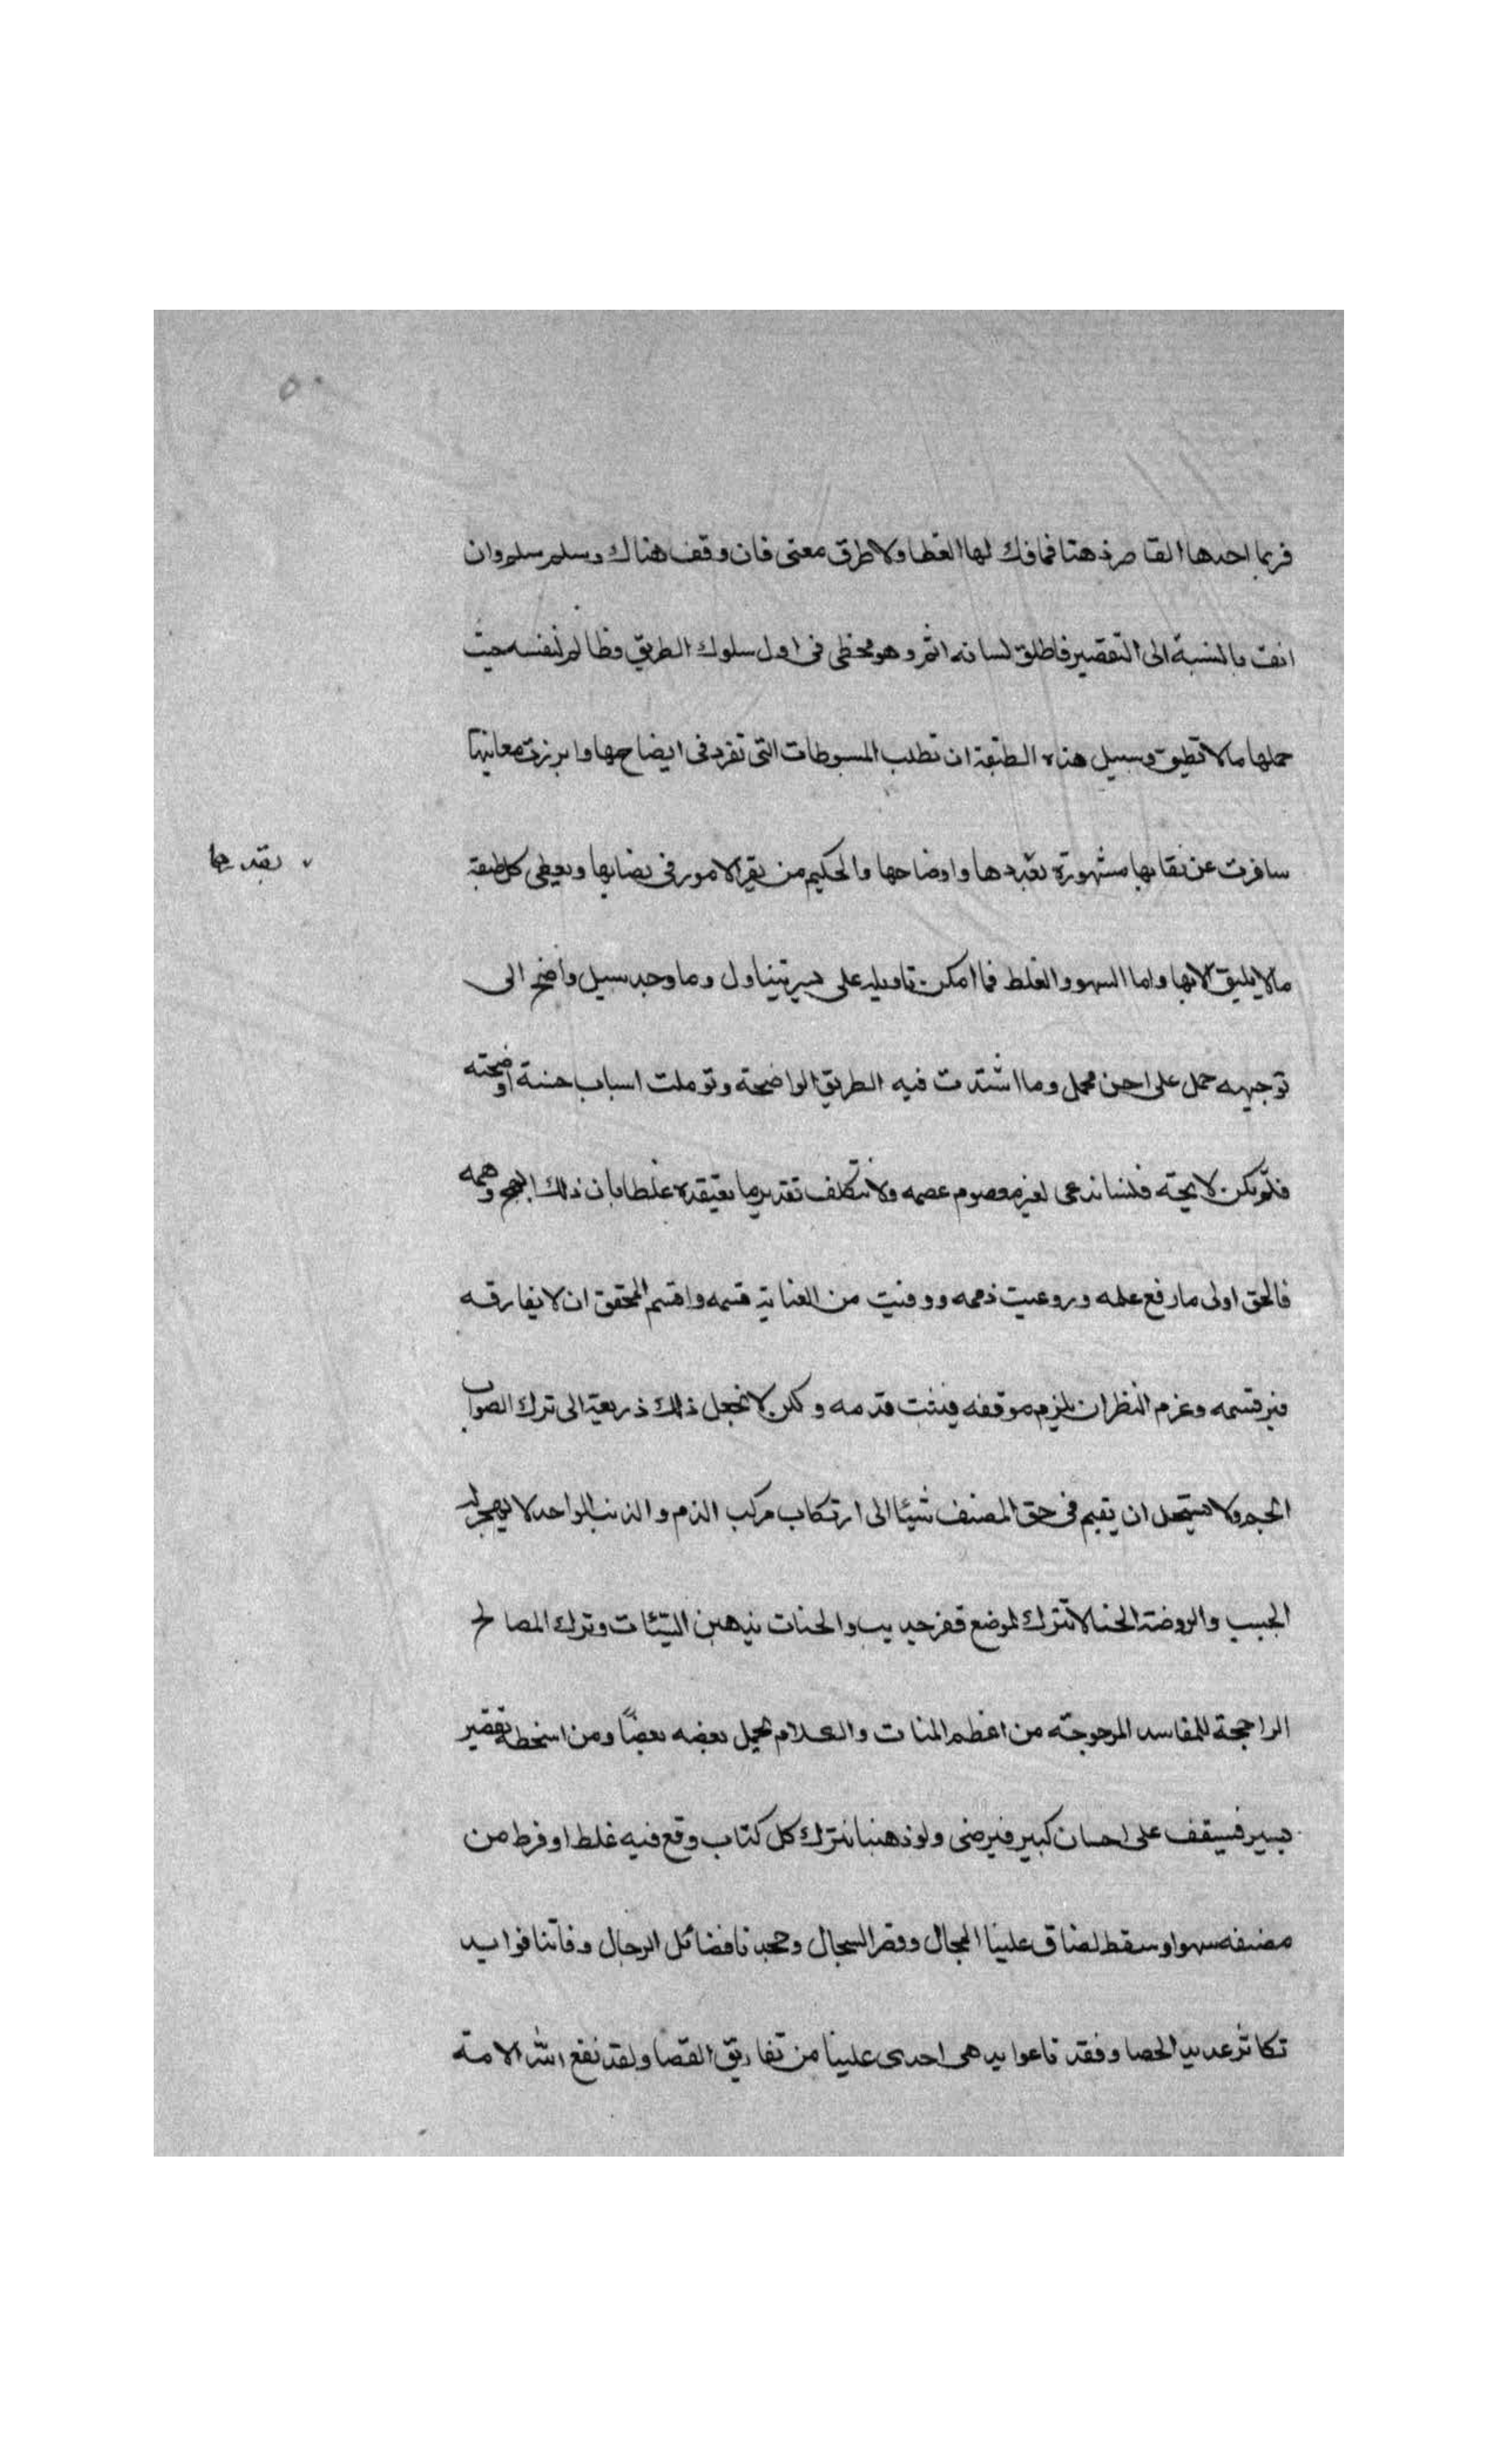 ٥٠
فربما اخذها القاصر ذهنا فما فك لها الغطا ولا طرق معنى فان وقف هناك وسلم سلم وان
انف بالنسبة الى التقصير فاطلق لسانه اثم وهو مخطى فى اول سلوك الطريق وظالم لنفسه حيث
حملها مالا تطيق وسبيل هذه الطبقة ان تطلب المبسوطات التى تفرد فى ايضاحها وابرزت معانيها
سافرت عن نقابها مشهورة وايضاحها والحكيم من يقر الامور فى نصابها ويعطى كل طبقة
مالا يليق الا بها واما السهو والغلط فما امكن تاويله على يتناول وما وجد سبيل واضح الى
توجيهه حمل على احسن محمل وما اشتدت فيه الطريق الواضحة وتوملت اسباب حسنة او
فلم يكن لايحته فلسنا ندعى لغير معصوم عصمه ولا نتكلف تقدير ما نعتقده غلطا بان ذلك
فالحق اولى ما رفع علمه وروعيت ذممه ووفيت من العناية قسمه واقسم المحقق ان لا يفارقه
فبر قسمه وعزم النظر ان يلزم موقفه فيثبت قدمه ولكن لا نجعل ذلك ذريعة الى ترك الصواب
الجم ولا نستحل ان يقيم فى حق المصنف شيئا الى ارتكاب مركب الذم والذنب الواحد لا يهجر له
الحبيب والروضة الحسنا لا تترك لموضع قفر جديب والحسنات يذهبن السيئات وترك المصالح
الراجحة للمفاسد المرجوحة من اعظم والكلام يحمل بعضه بعضًا ومن اسخطه تقصير
يسير فسيقف على احسان كبير فيرضى ولو ذهبنا نترك كل كتاب وقع فيه غلط او فرط من
مصنفه سهو او سقط لضاق علينا المجال وقصر السجال وجحدنا فضائل الرجال وفاتنا فوايد
تكاثر عديد الحصا وفقدنا عوايد هى اجدى علينا من تفاريق العصا ولقد نفع الله الامة